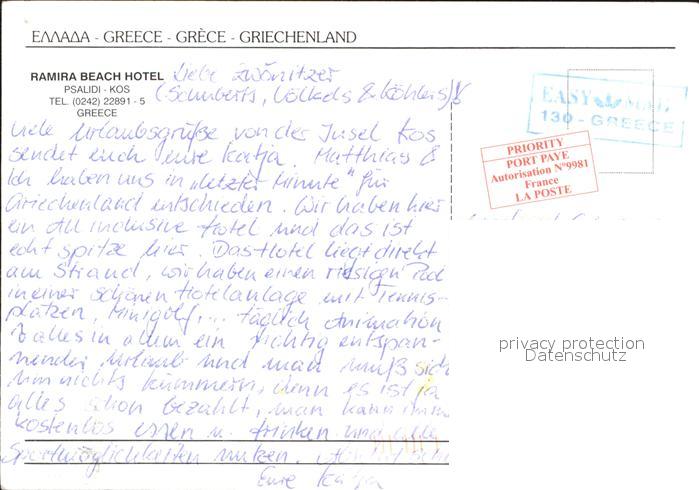 ΕΛΛΑΔΑ - GREECE - GRÈCE - GRIECHENLAND
RAMIRA BEACH HOTEL
PSALIDI - KOS
TEL. (0242) 22891 - 5
GREECE
Liebe Zwönitzer
(Schuberts, Völkels & Köhlers)!
Viele Urlaubsgrüße von der Insel Kos
sendet euch eure Katja. Matthias &
Ich haben uns in „letzter Minute“ für
Griechenland entschieden. Wir haben hier
ein All inclusive Hotel und das ist
echt spitze hier. Das Hotel liegt direkt
am Strand, wir haben einen riesigen Pool
in einer schönen Hotelanlage mit Tennis-
plätzen, Minigolf,... täglich Animation
alles in allem ein richtig entspan-
nender Urlaub und man muß sich
um nichts kümmern, denn es ist ja
alles schon bezahlt, man kann
kostenlos essen u. trinken und alle
Sportmöglichkeiten nutzen.
Eure Katja
EASY MAIL
130 - GREECE
PRIORITY
PORT PAYE
Autorisation N°9981
France
LA POSTE
privacy protection
Datenschutz